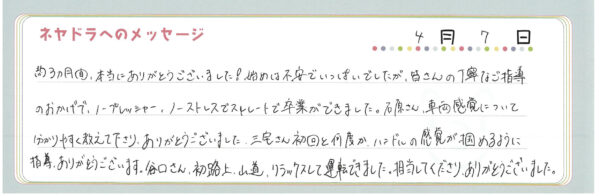 ネヤドラへのメッセージ
4月7日
約3ヵ月間、本当にありがとうございました!始めは不安でいっぱいでしたが、皆さんの丁寧なご指導
のおかげで、ノープレッシャー、ノーストレスでストレートで卒業ができました。石原さん、車両感覚について
分かりやすく教えて下さり、ありがとうございました。三宅さん初回と何度か、ハンドルの感覚が掴めるように
指導、ありがとうございます。谷口さん、初路上、山道、リラックスして運転できました。担当してくださり、ありがとうございました。